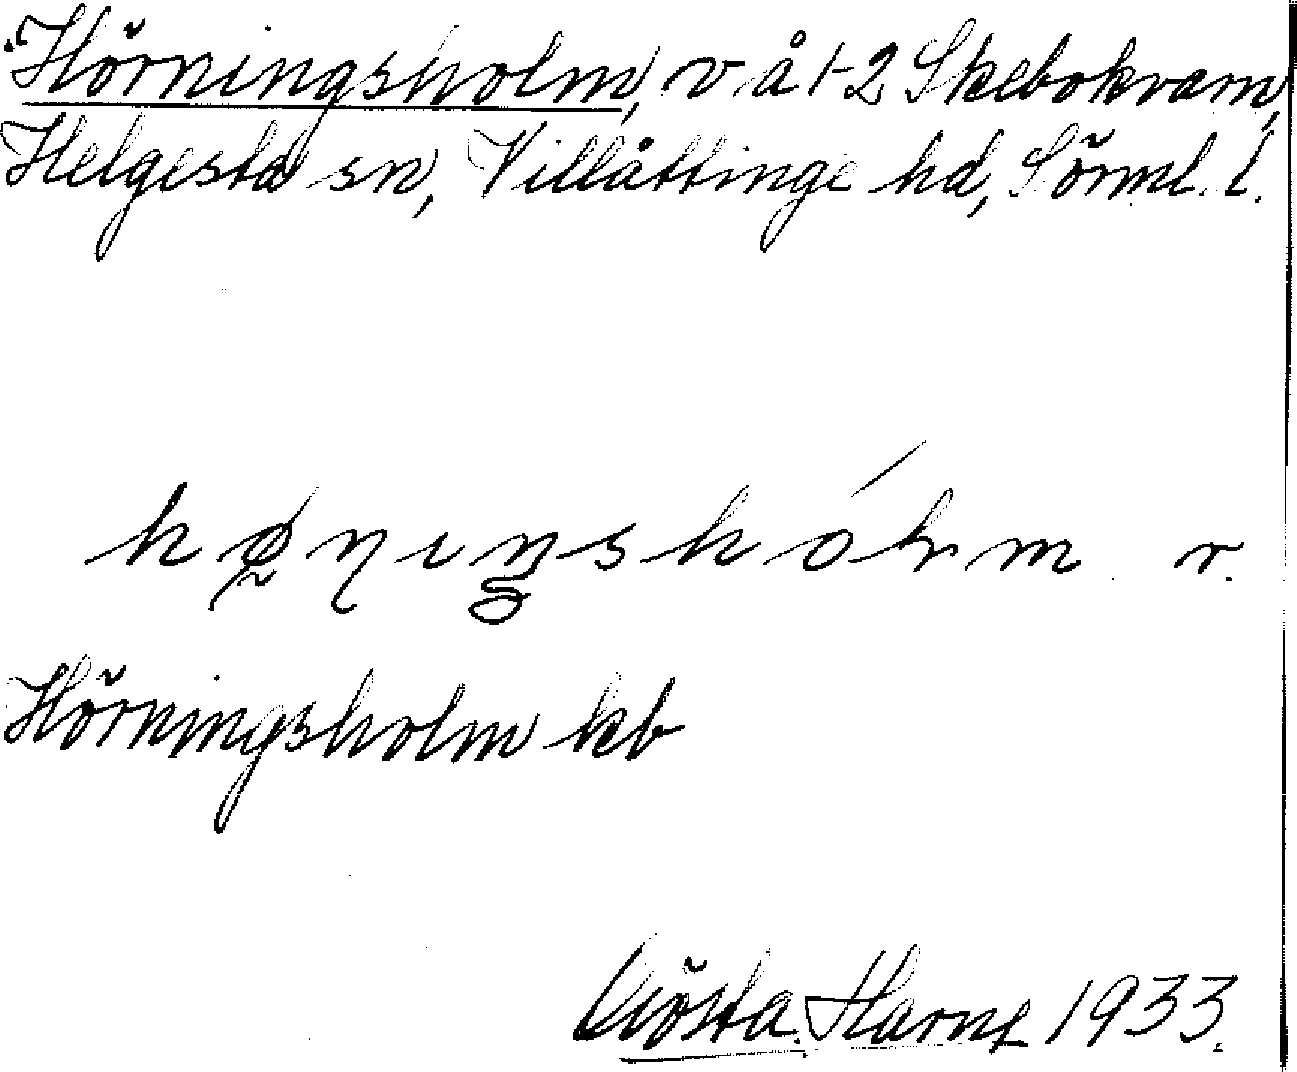 Hörningsholm, v å 1-2 Skebokvarn,
Helgesta sn, Villåttinge hd, Sörml. l.
hø̰ɳıŋshólm r.
Hörningsholm kb
Gösta Harne 1933.